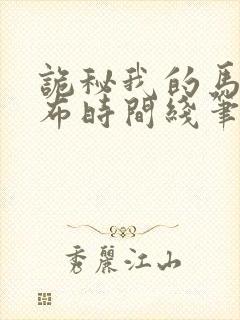 詭秘我的馬
布時間綫筆
秀麗江山